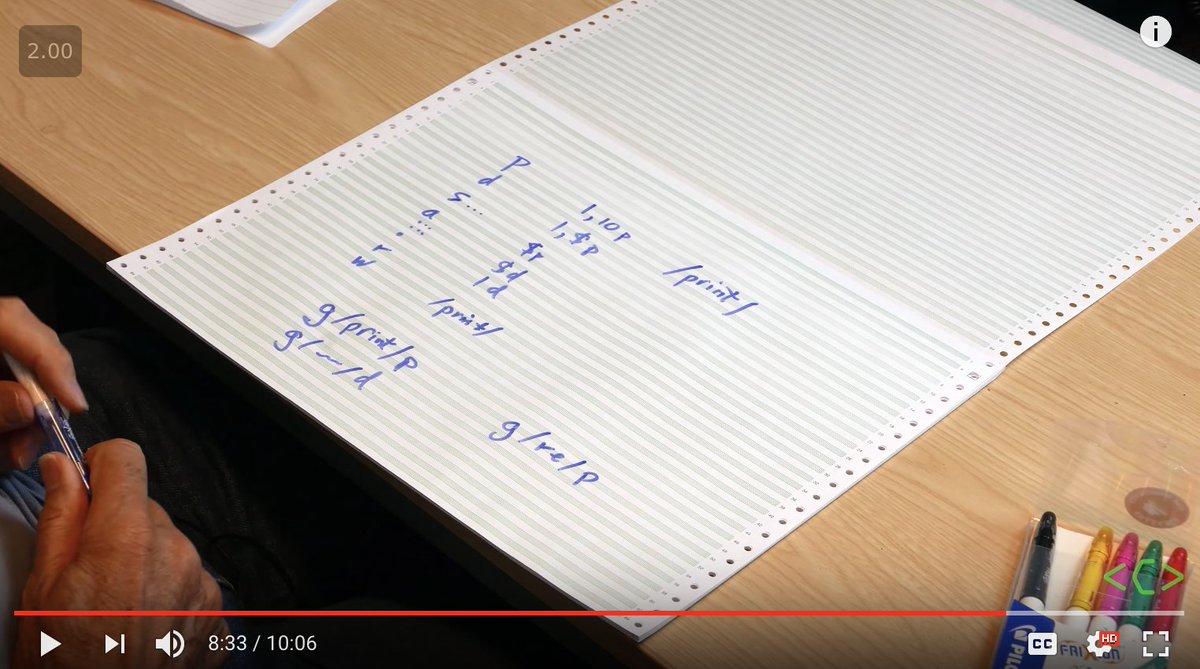 2.00
i
p
d
s...
a
...
.
r
w
1,10p
1,$p
$p
$d
1d
/print/
/print/
g/print/p
g/~/d
g/re/p
<C>
PIL
FRIXION
8:33 / 10:06
CC
HD